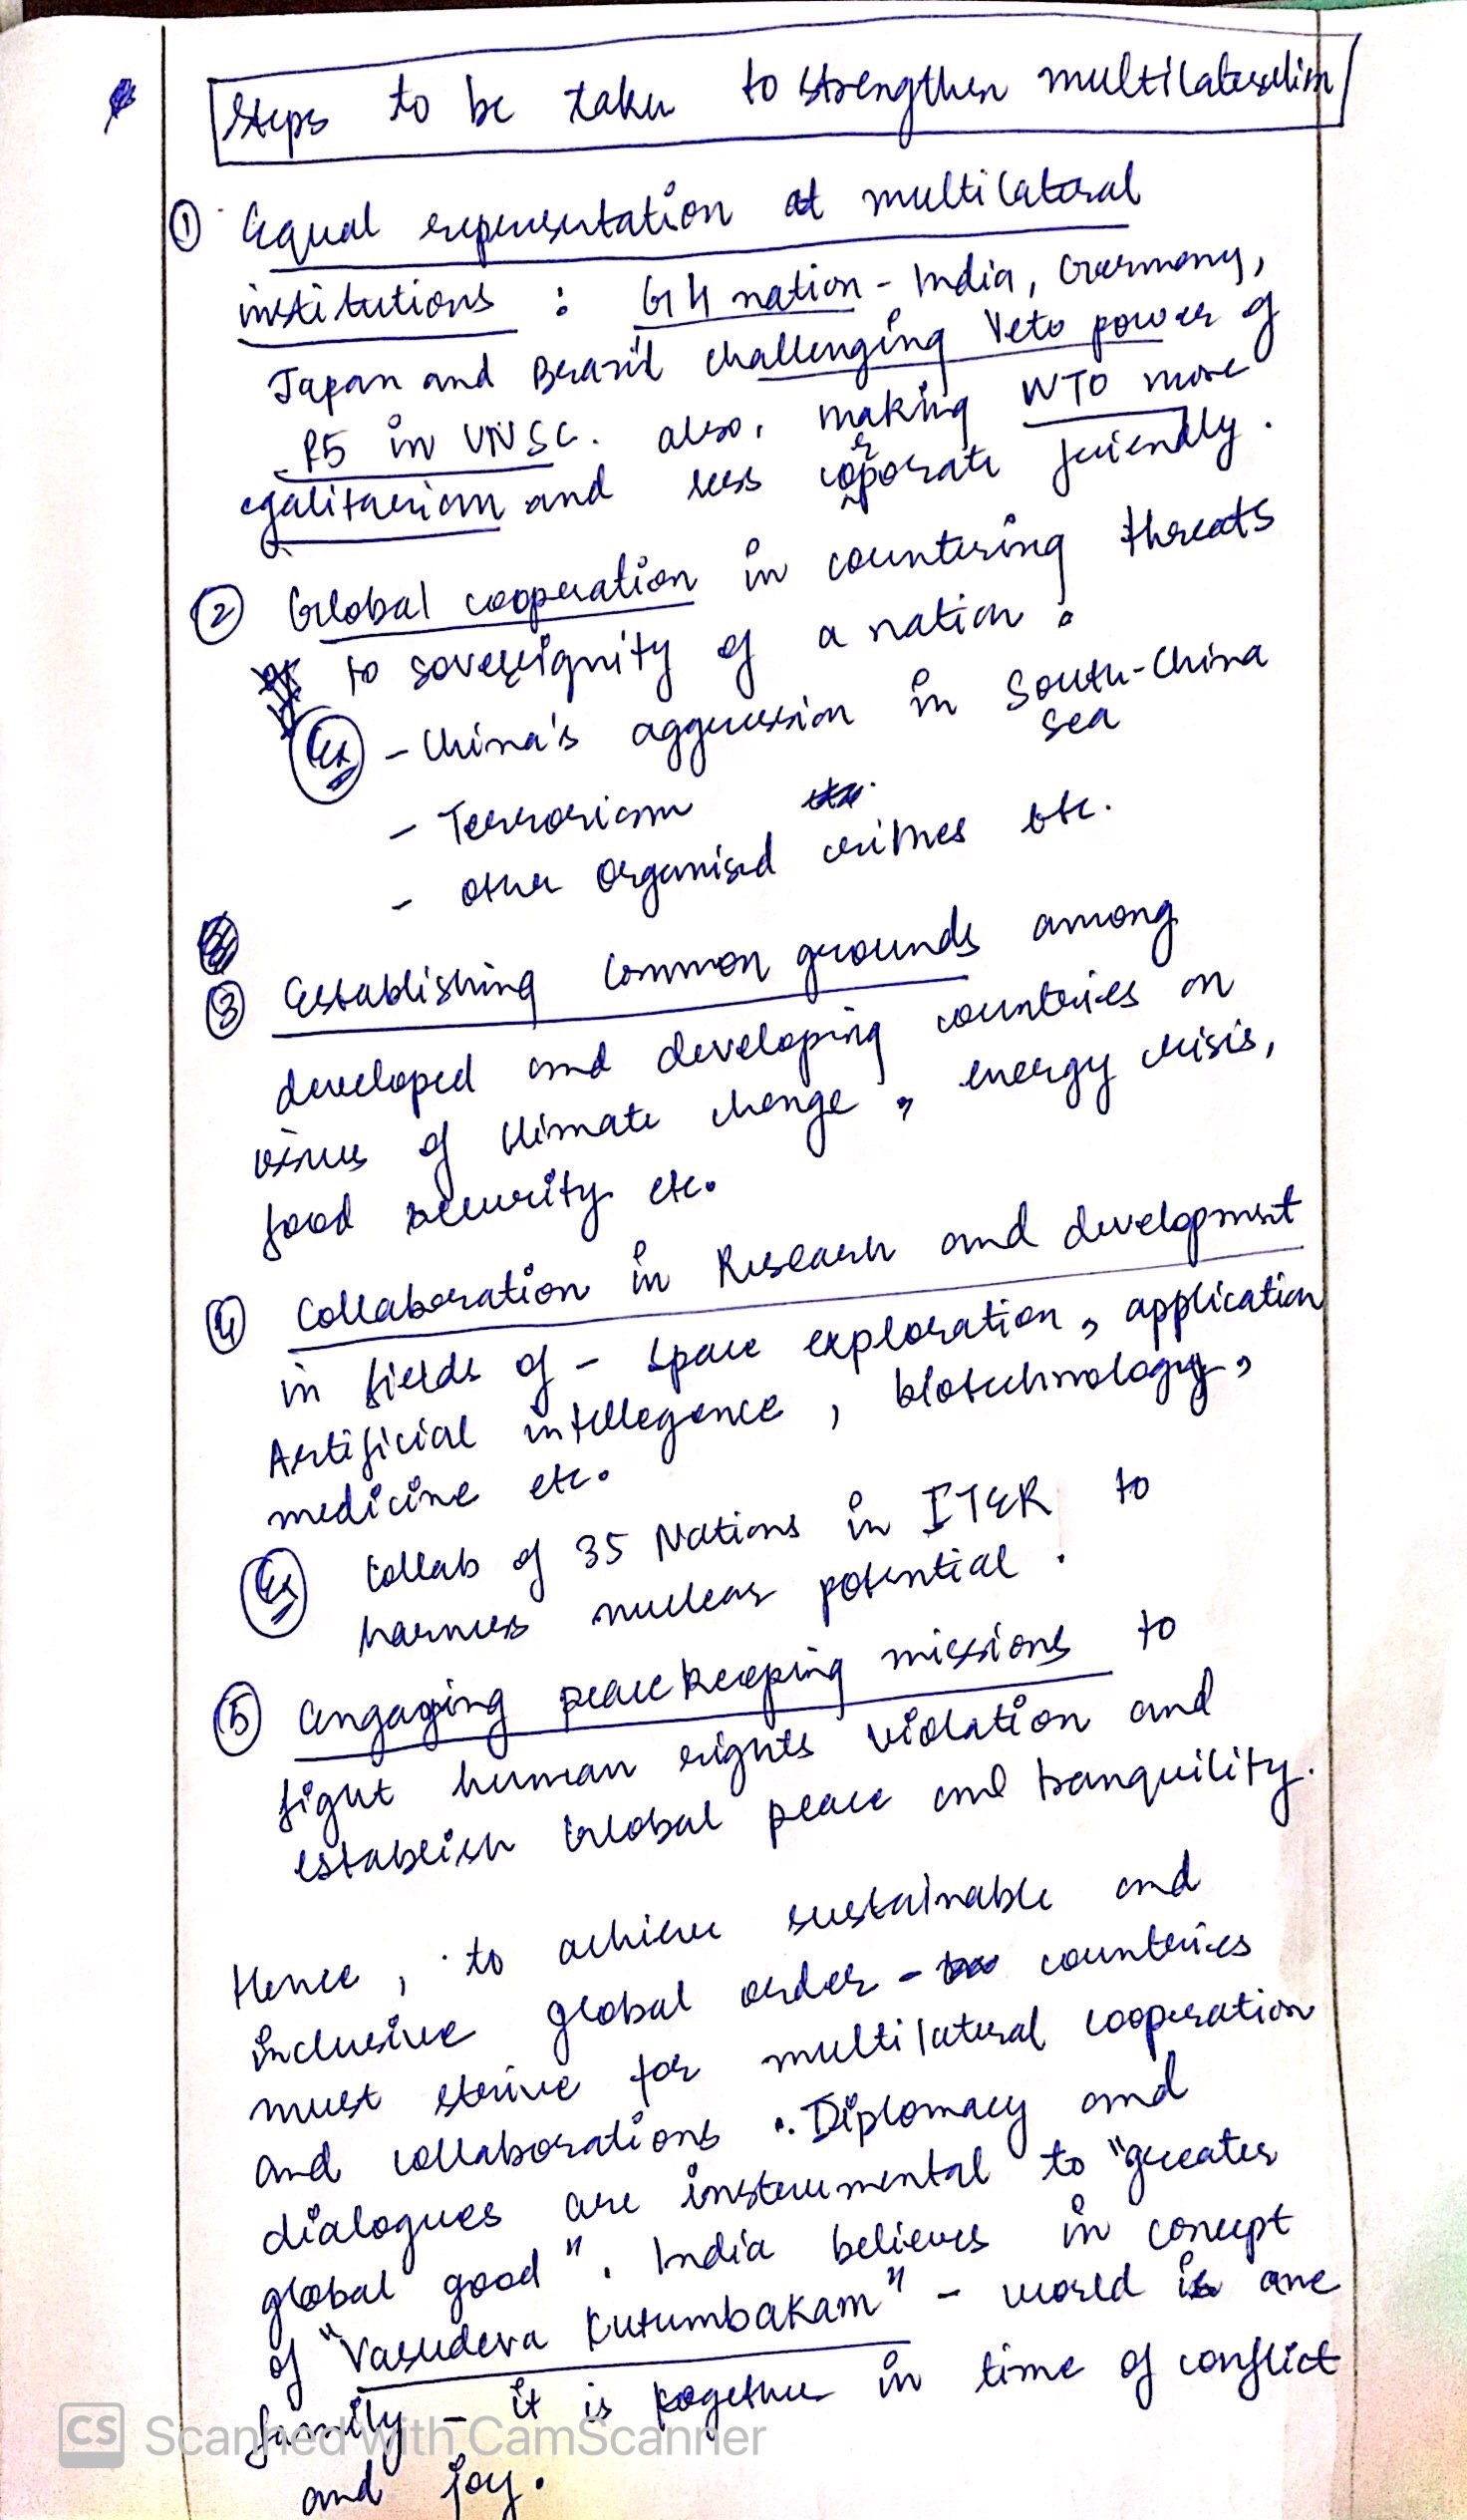 Steps to be taken to strengthen multilateralism
① Equal representation at multilateral
institutions : G4 nation - India, Germany,
Japan and Brazil challenging Veto power of
P5 in UNSC. also, making WTO more
egalitarian and less corporate friendly.
② Global cooperation in countering threats
to sovereignity of a nation :
Ex - China's aggression in South-China
Sea
- Terrorism
- other organised crimes etc.
③ Establishing common grounds among
developed and developing countries on
of climate change, energy crisis,
food security etc.
④ Collaboration in Research and development
in fields of - space exploration, application
Artificial intellegence, biotechnology,
medicine etc.
Ex Collab of 35 Nations in ITER to
harness nuclear potential.
⑤ Engaging peacekeeping missions to
fight human rights violation and
establish Global peace and tranquility.
Hence, to achieve sustainable and
inclusive global order - countries
must strive for multilateral cooperation
and collaborations. Diplomacy and
dialogues are instrumental to "greater
global good". India believes in concept
of "Vasudeva Kutumbakam" - world is one
family - it is together in time of conflict
and joy.
CS Scanned with CamScanner